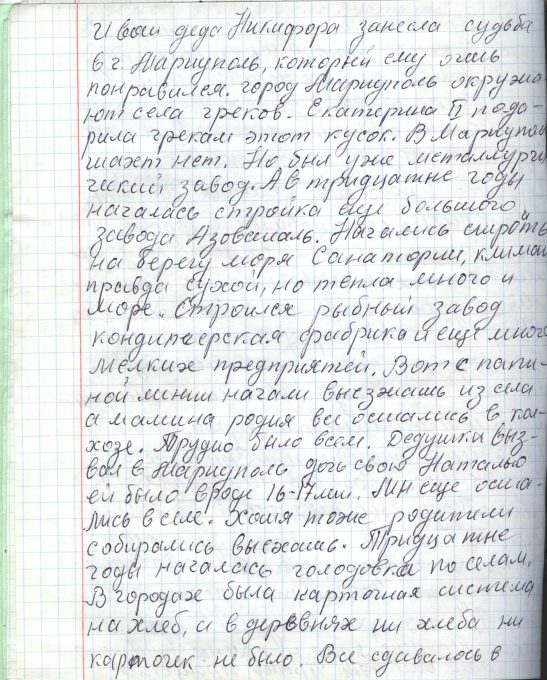 И вот деда Никифора занесла судьба
в г. Мариуполь, который ему очень
понравился. город Мариуполь окружа-
ют села греков. Екатерина II пода-
рила грекам этот кусок. В Мариупол
шахт нет. Но был уже металлурги
ческий завод. А в тридцатые годы
началась стройка еще большого
завода Азовсталь. Начались строить
на берегу моря Санатории, климат
правда сухой, но тепла много и
море. Строился рыбный завод
кондитерская фабрика и еще много
мелких предприятий. Вот с папи-
ной линии начали выезжать из села
а мамина родня все остались в кол-
хозе. Трудно было всем. Дедушка выз-
вал в Мариуполь дочь свою Наталью
ей было вроде 16-17 лет. Мы еще оста-
лись в селе. Хотя тоже родители
собирались выезжать. Тридцатые
годы началась голодовка по селам.
В городах была карточная система
на хлеб, а в деревнях ни хлеба ни
карточек не было. Все сдавалось в